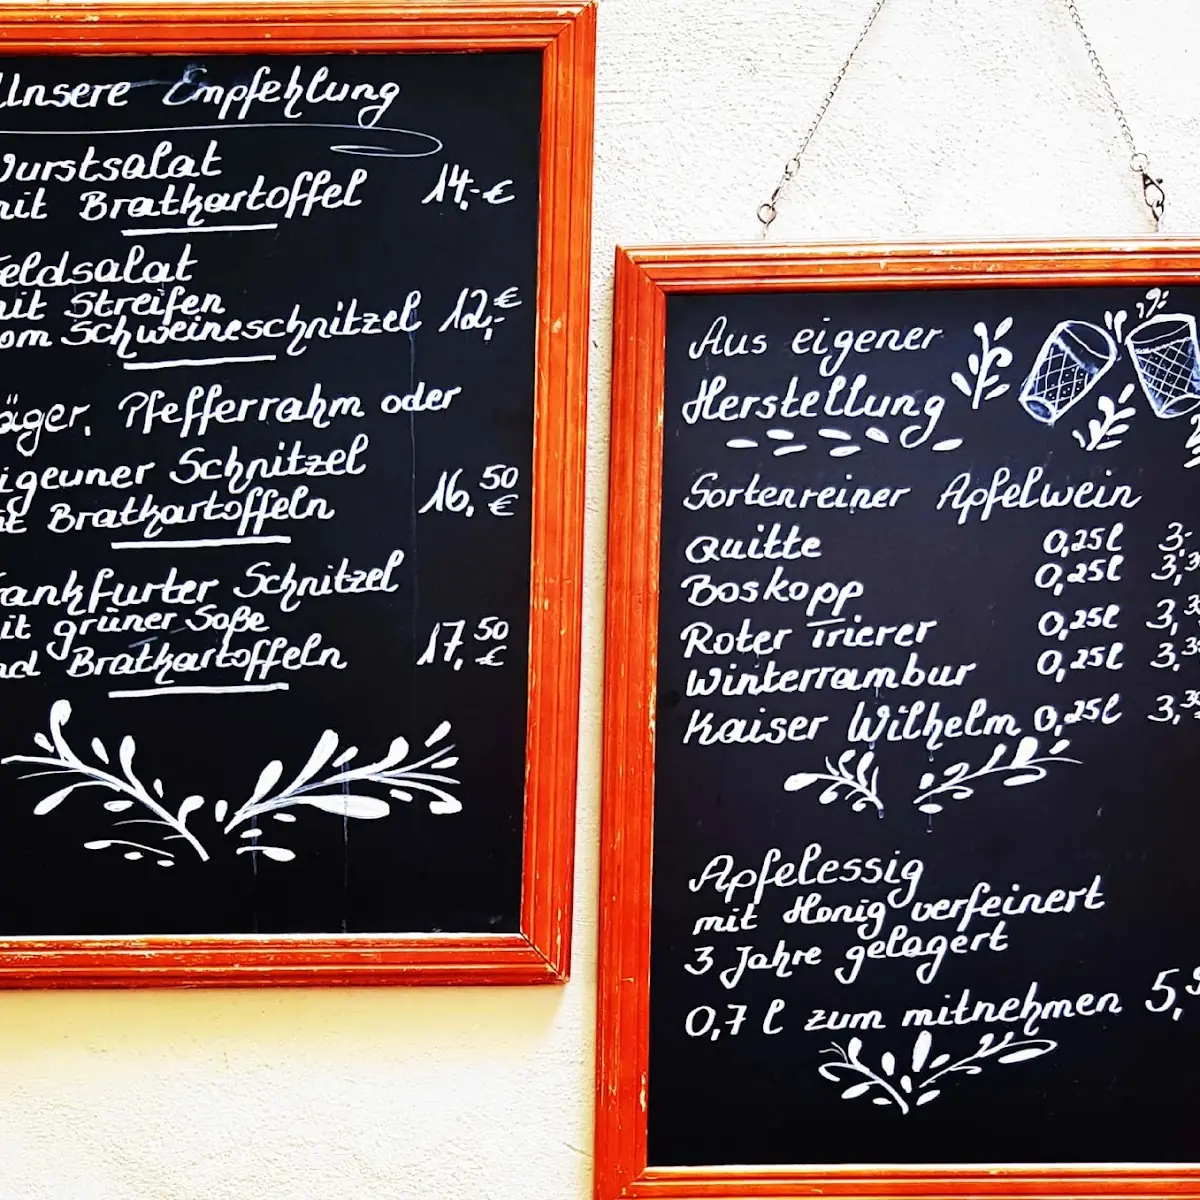 Unsere Empfehlung
Wurstsalat
mit Bratkartoffel 14,-€
Feldsalat
mit Streifen
vom Schweineschnitzel 12,-€
Jäger, Pfefferrahm oder
Zigeuner Schnitzel
mit Bratkartoffeln 16,50 €
Frankfurter Schnitzel
mit grüner Soße
und Bratkartoffeln 17,50 €
Aus eigener
Herstellung
Sortenreiner Apfelwein
Quitte 0,25l 3,-
Boskopp 0,25l 3,3
Roter Trierer 0,25l 3,3
Winterrambur 0,25l 3,3
Kaiser Wilhelm 0,25l 3,3
Apfelessig
mit Honig verfeinert
3 Jahre gelagert
0,7 l zum mitnehmen 5,